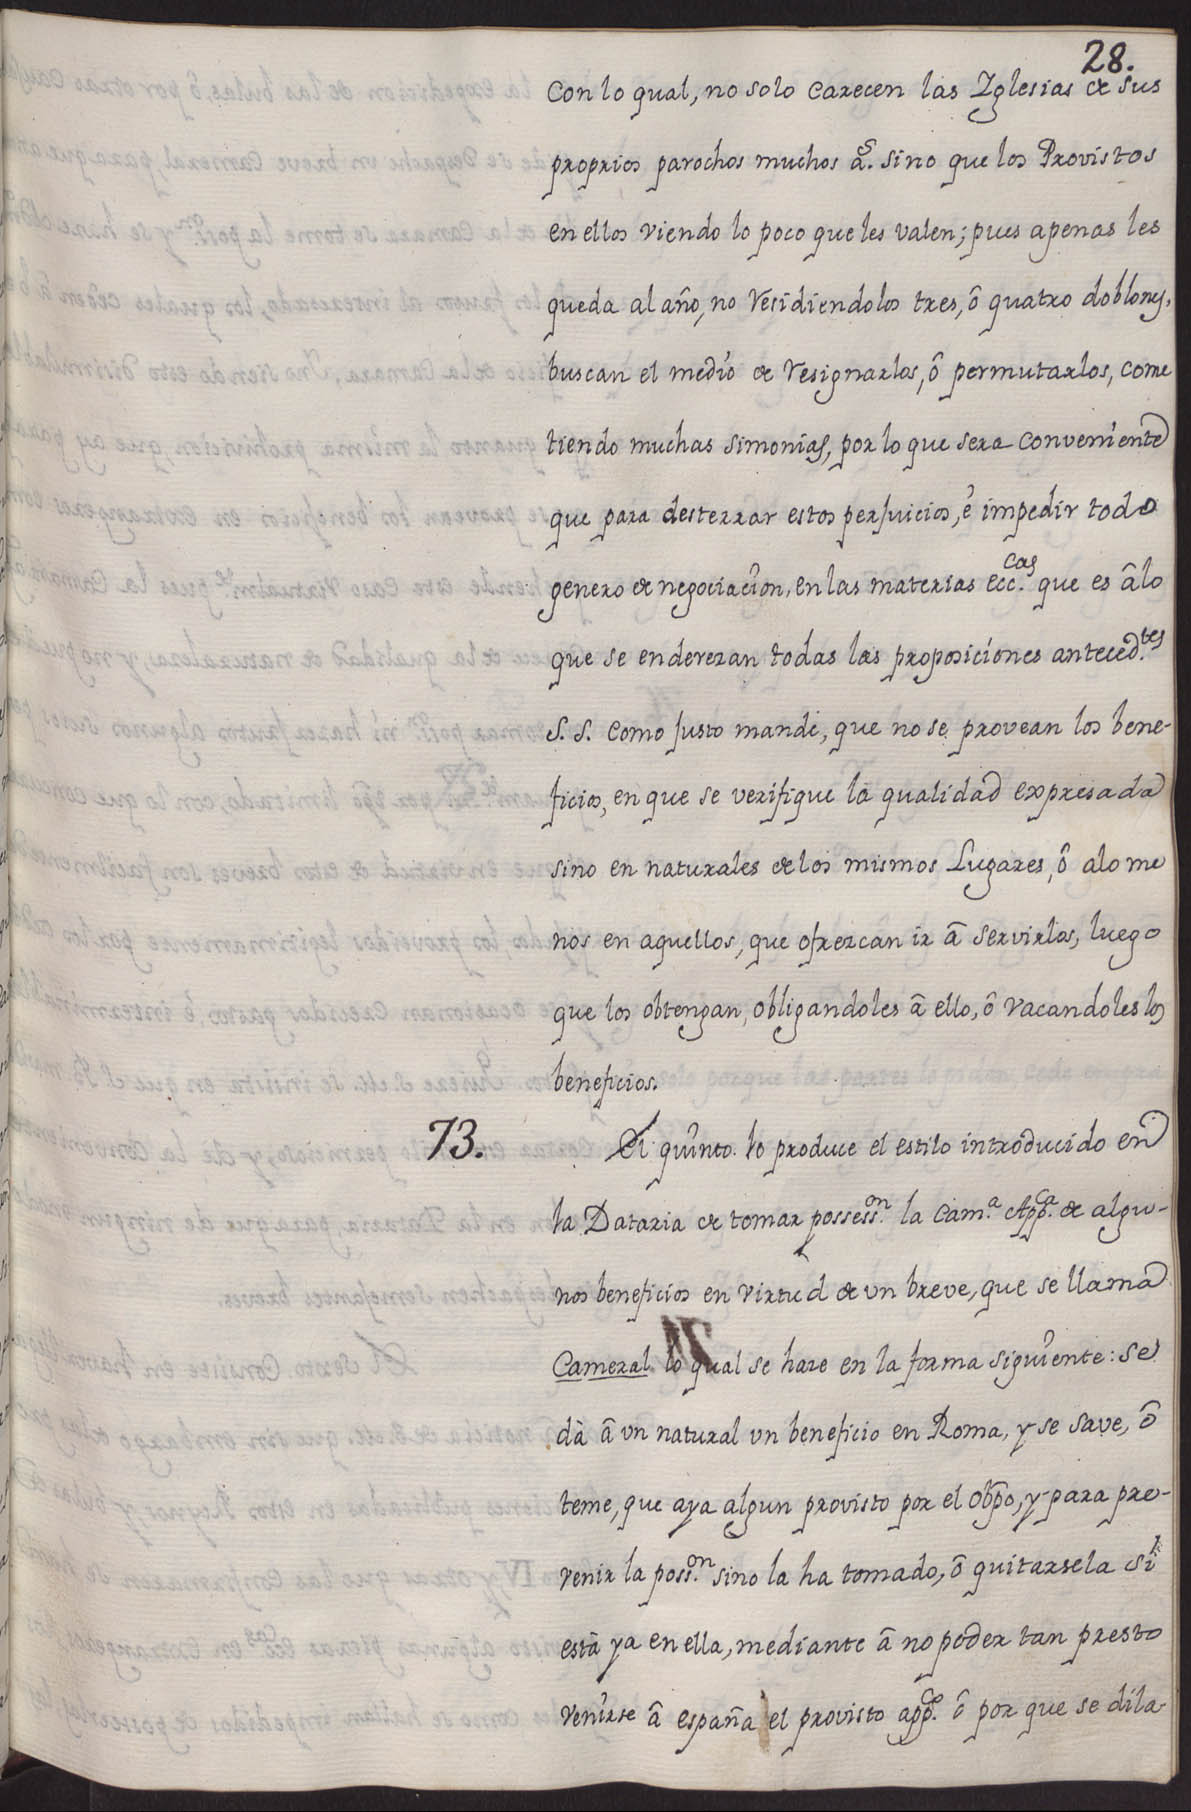 28.
Con lo qual, no solo carecen las Yglesias de sus
proprios parochos muchos a.ˢ sino que los Provistos
en ellos viendo lo poco que les valen; pues apenas les
queda al año, no residiendolos tres, ô quatro doblones,
buscan el medio de resignarlos, ô permutarlos, come
tiendo muchas simonias, por lo que sera conveniente
que para desterrar estos perjuicios, è impedir todo
genero de negociacion, en las materias ecc.ᶜᵃˢ que es âlo
que se enderezan todas las proposiciones anteced.ᵗᵉˢ
S. S. como justo mande, que no se provean los bene-
ficios, en que se verifique la qualidad expresada
sino en naturales de los mismos Lugares, ô alo me
nos en aquellos, que ofrezcan ir â servirlos, luego
que los obtengan, obligandoles â ello, ô vacandoles los
beneficios.
73. El quinto lo produce el estilo introducido en
la Dataria de tomar possess.ᵒⁿ la Cam.ᵃ App.ᶜᵃ de algu-
nos beneficios en virtud de vn breve, que se llama
Cameral lo qual se haze en la forma siguiente: se
dà â vn natural vn beneficio en Roma, y se save, ô
teme, que aya algun provisto por el Obpo, y para pre-
venir la poss.ᵒⁿ sino la ha tomado, ô quitarsela si
està ya en ella, mediante â no poder tan presto
venirse â españa el provisto app.ᶜᵒ ô por que se dila-